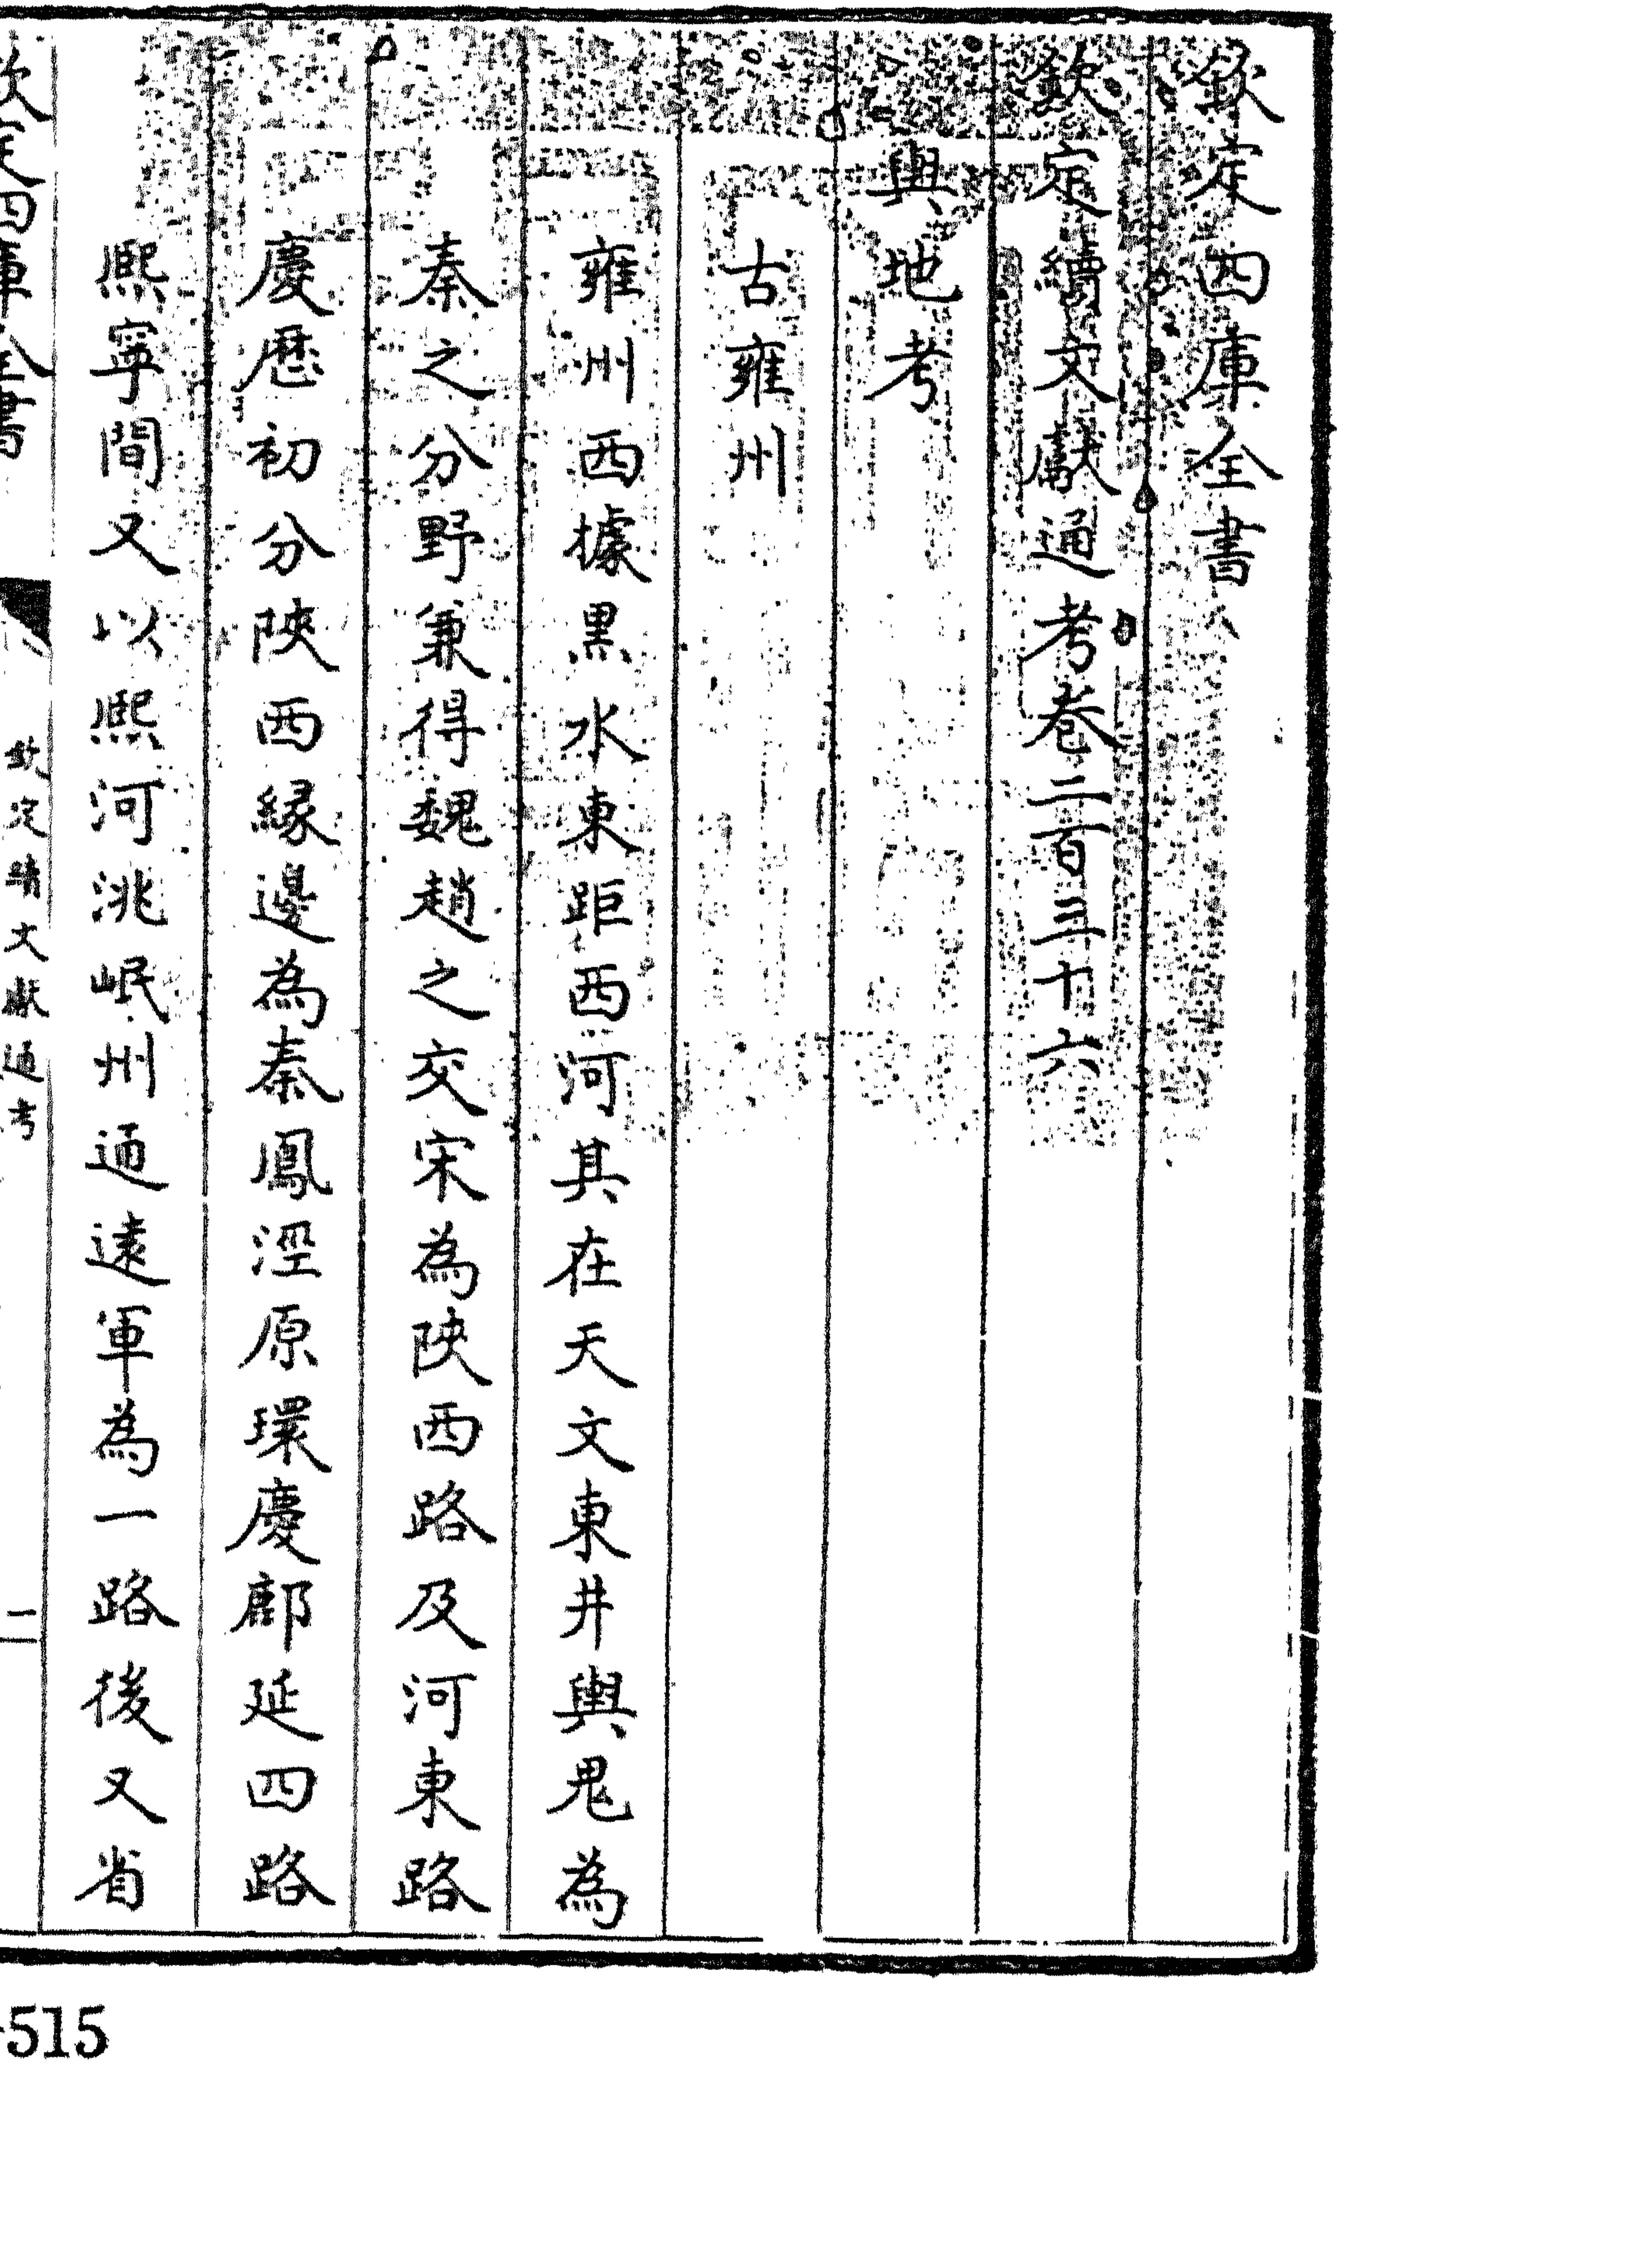 欽定四庫全書
欽定續文獻通考卷二百三十六
輿地考
古雍州
雍州西據黑水東距西河其在天文東井輿鬼為
秦之分野兼得魏趙之交宋為陜西路及河東路
慶厯初分陜西縁邊為秦鳳涇原環慶鄜延四路
熙寧間又以熙河洮岷州通遠軍為一路後又省
欽定四庫全書
欽定續文獻通考
二
515